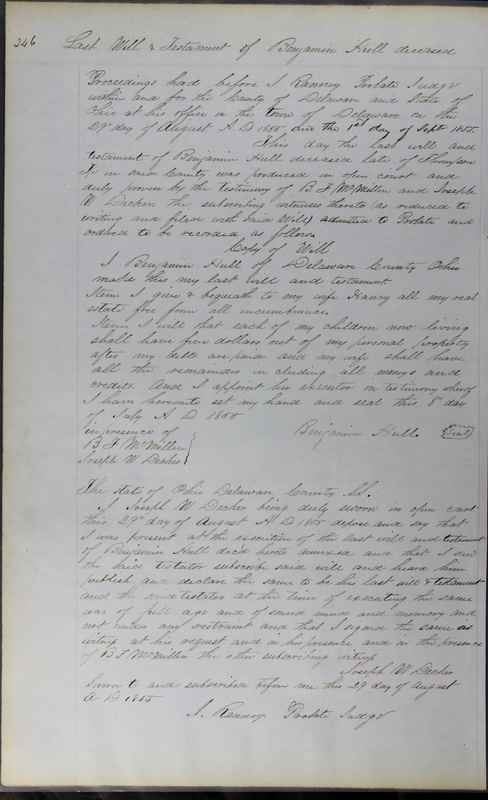 346
Last Will & Testament of Benjamin Hull deceased
Proceedings had before I Ranney Probate Judge
within and for the County of Delaware and State of
Ohio at his office in the Town of Delaware on the
29th day of August A D 1855 and the 1st day of Sept 1855.
This day the last will and
testament of Benjamin Hull deceased late of Thompson
Tp in said County was produced in open court and
duly proven by the testimony of B F McMillen and Joseph
W Decker the subscribing witnesses thereto (as reduced to
writing and filed with said Will) admitted to Probate and
ordered to be recorded as follows
Copy of Will
I Benjamin Hull of Delaware County Ohio
make this my last will and testament
Item I give & bequeath to my wife Nancy all my real
estate free from all incumbrances
Item I will that each of my children now living
shall have five dollars out of my personal property
after my debts are paid and my wife shall have
all the remainder including all moneys and
credits. And I appoint her executor in testimony whereof
I have hereunto set my hand and seal this 8th day
of July A D 1855
in presence of
Benjamin Hull Seal
B F McMillen
Joseph W Decker
The State of Ohio Delaware County SS.
I Joseph W Decker being duly sworn in open court
this 29th day of August A D 1855 depose and say that
I was present at the execution of the last will and testament
of Benjamin Hull decd hereto annexed and that I saw
the said testator subscribe said will and heard him
publish and declare the same to be his last will & testament
and the said testator at the time of executing the same
was of full age and of sound mind and memory and
not under any restraint and that I signed the same as
witness at his request and in his presence and in the presence
of B F McMillen the other subscribing witness
Joseph W Decker
Sworn to and subscribed before me this 29 day of August
A D 1855
I. Ranney Probate Judge